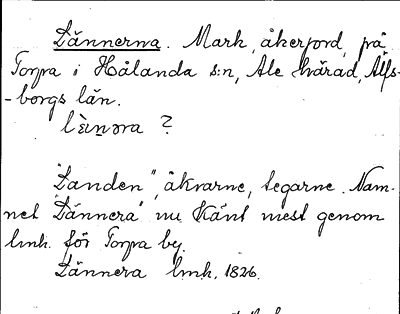 Lännerna. Mark, åkerjord, på
Torpa i Hålanda s:n, Ale härad, Älfs-
-borgs län.
lèinəra ?
"Landen", åkrarne, tegarne. Nam-
net "Lännera" nu känt mest genom
lmk. för Torpa by.
Lännera lmk. 1826.